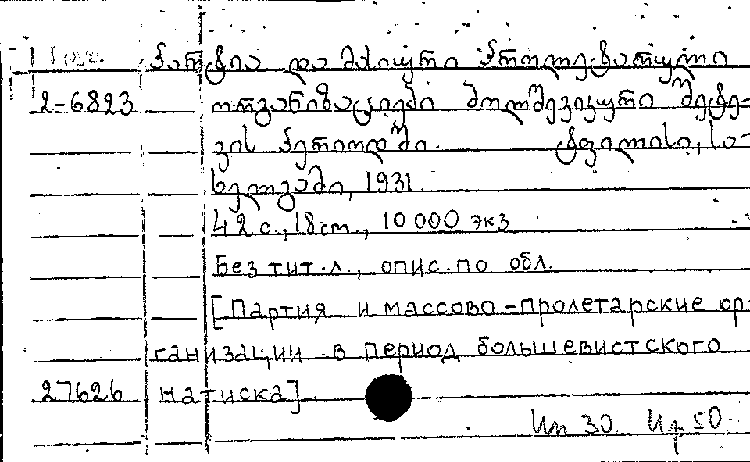 პარტია და მასიური პროლეტარული
2-6823 ორგანიზაციები ბოლშევიკური შეტე-
ვის პერიოდში. ტფილისი, სა-
ხელგამი, 1931.
42 с., 18 cm., 10 000 экз
Без тит. л., опис. по обл.
[Партия и массово-пролетарские ор-
ганизации в период большевистского
27626 натиска]
Ип 30. Ир 50